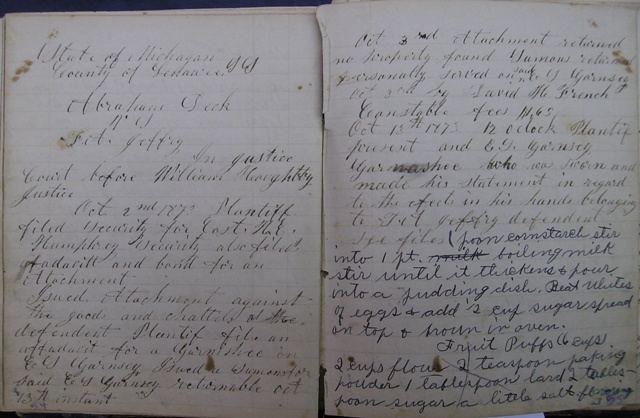 State of Michigan
County of Lenawee SS
Abraham Deck
vs
F. A. Jeffry
In justice
Court before William
Justice
Oct 2nd 1873 Plantiff
filed security for Cost H. C.
Humphrey Security also filed
afadavid and bond for an
Attachment
Issued Attachment against
the good and chattels of the
defendent Plantif file an
affadavit for a Garnishee on
E G Garnsey Issued a Sumons for
said E G Garnsey returnable Oct
13th instant
Oct 3rd Attachment returned
no Property found Sumons returned
personally served on said E G Garnsey
Oct 2nd by David H French
Constable fees $1,63
Oct 13th 1873 12 oclock Plantif
present and E G Garnsey
Garnashee who was sworn and
made his statement in regard
to the efects in his hands belonging
to Jeffry defendent
see files 1 spoon cornstarch stir
into 1 pt. milk boiling milk
stir until it thickens & pour
into a pudding dish. Beat whites
of eggs & add 1/2 cup sugar spread
on top & broun in oven.
Fruit Puffs (6 cups)
2 cups flour 2 teaspoon baking
powder 1 tablespoon lard 2 tables-
poon sugar a little salt